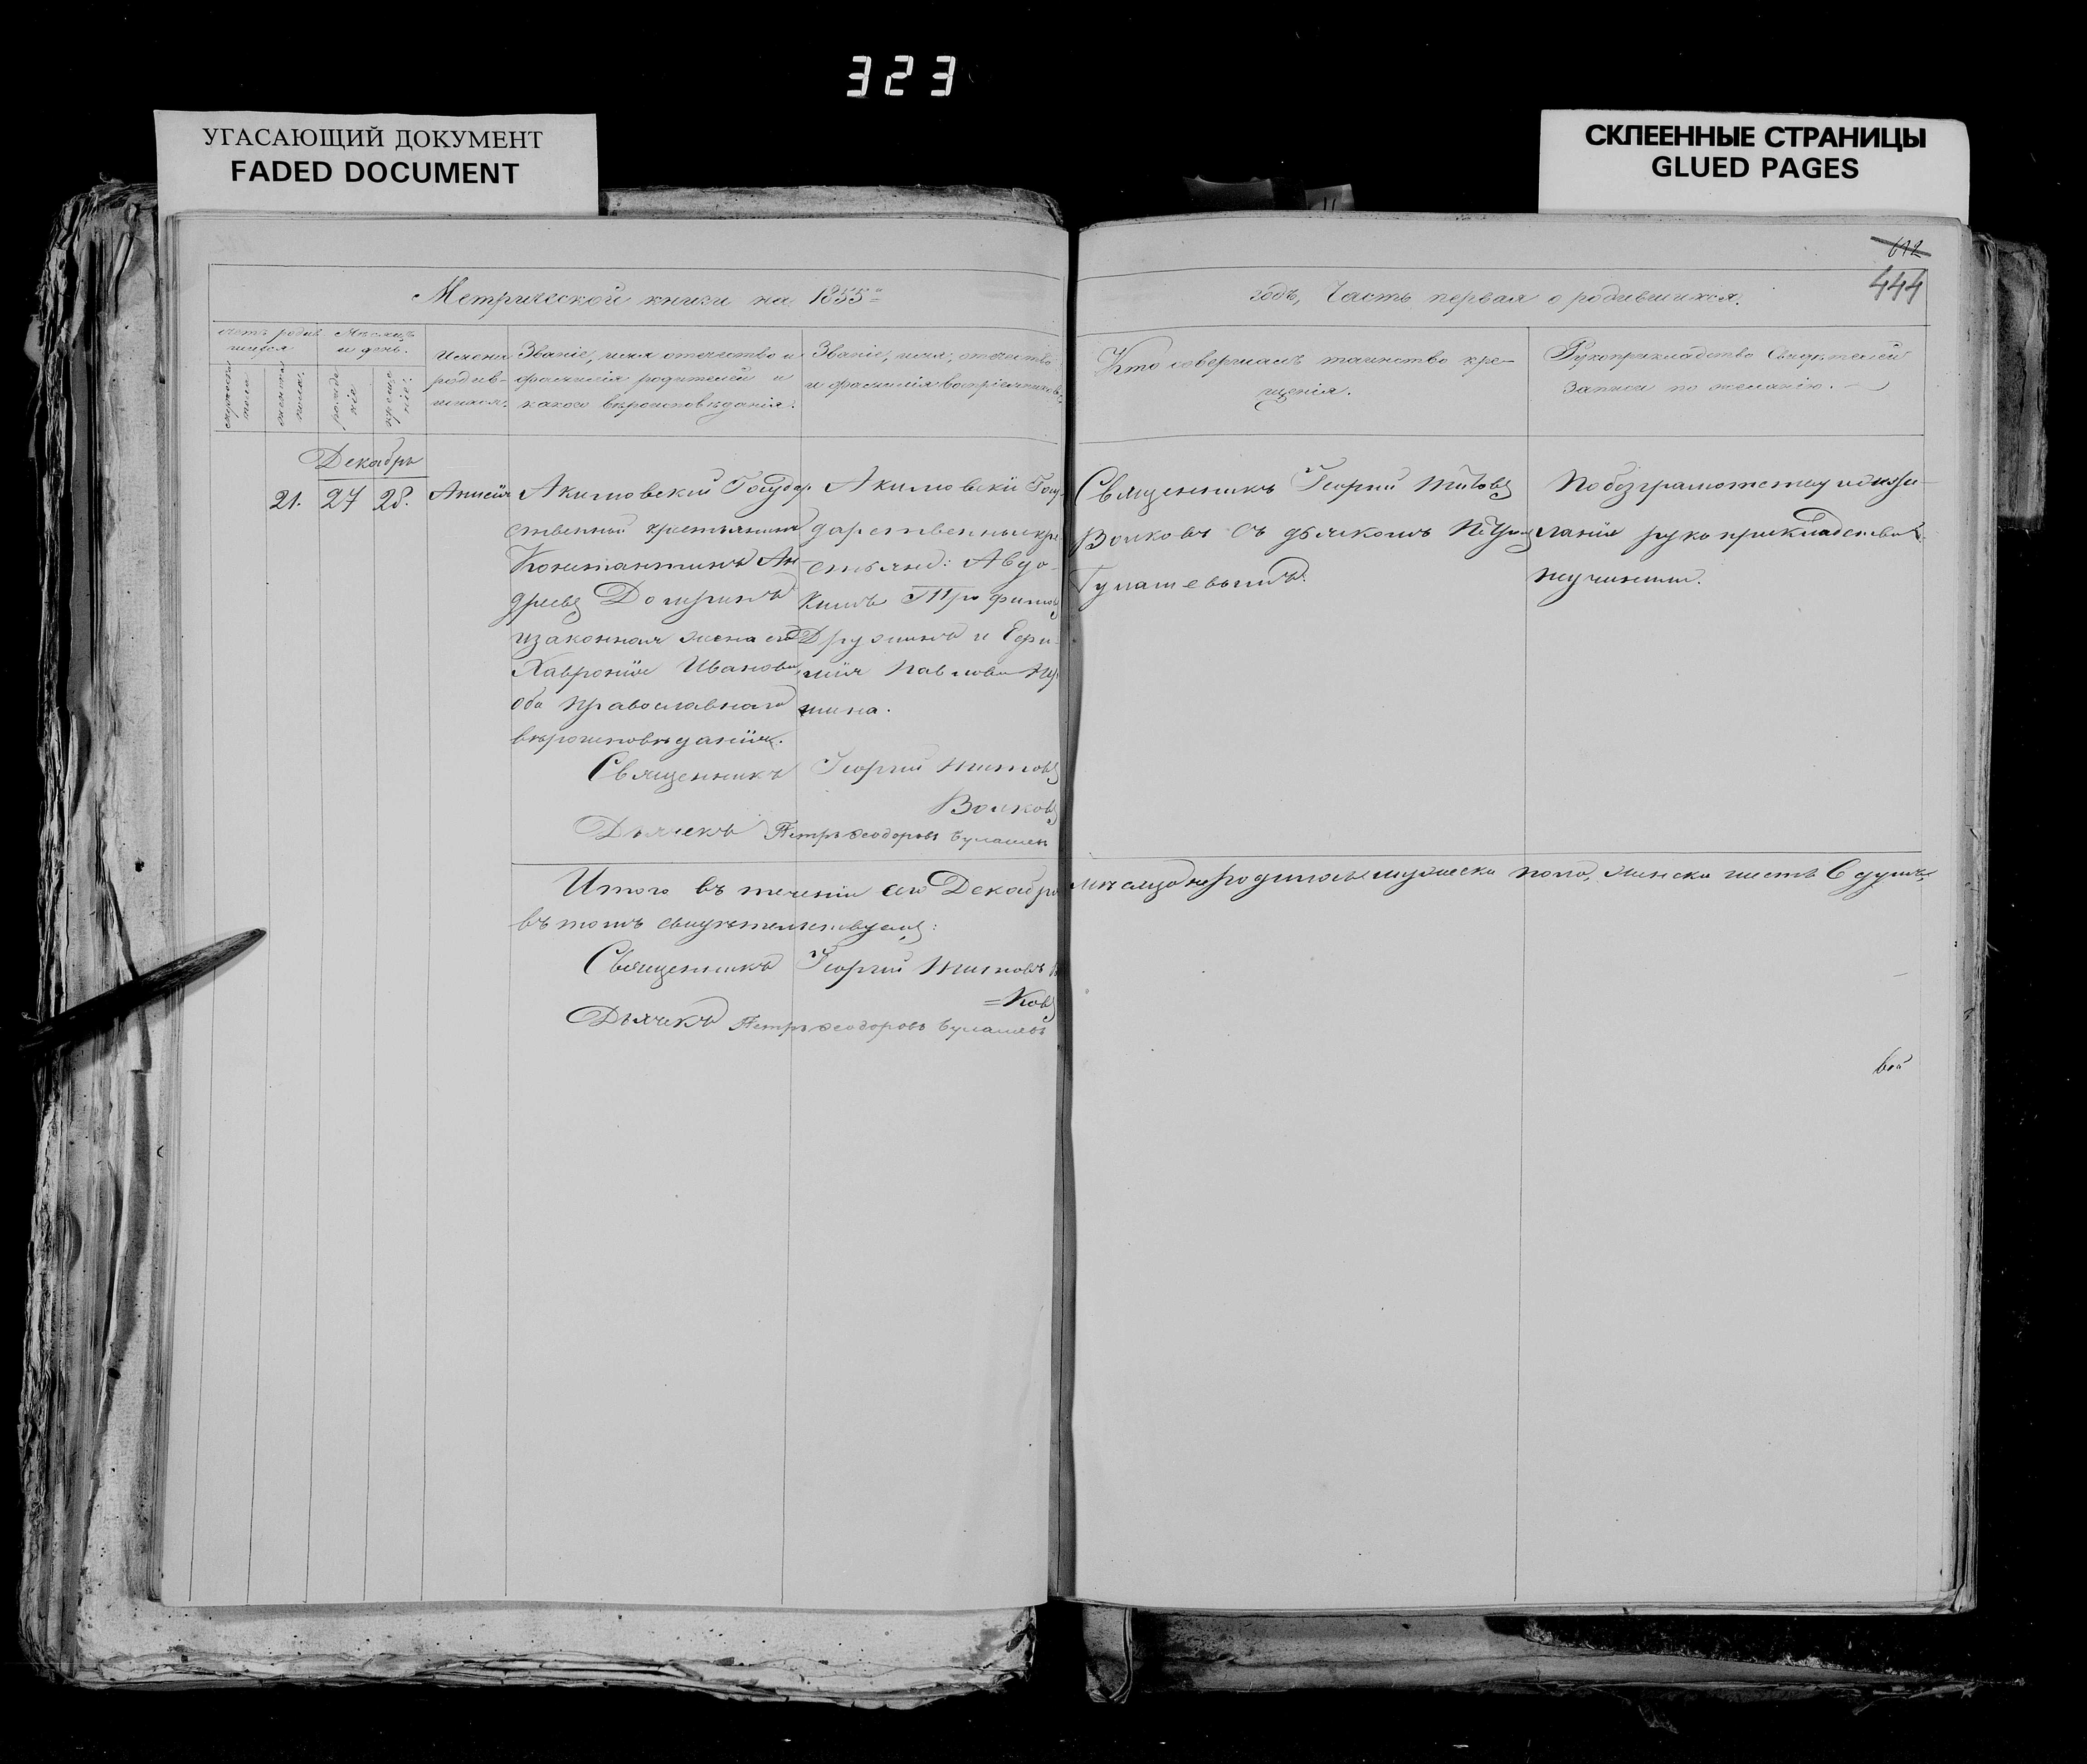 323
УГАСАЮЩИЙ ДОКУМЕНТ
FADED DOCUMENT
СКЛЕЕННЫЕ СТРАНИЦЫ
GLUED PAGES
612
444
Метрической книги на 1855й
годъ, Часть первая о родившихся.
Счетъ родив-
шихся
мужеска
пола
женска
пола.
Месяцъ
и день.
рожде
ніе
креще
ніе.
Имена
родив-
шихся.
Званіе, имя отчество и
фамилія родителей и
какого вѣроисповѣданія.
Званіе, имя, отчество
и фамилія воспріемниковъ.
Кто совершалъ таинство кре-
щенія.
Рукоприкладство свидѣтелей
записи по желанію.
Декабрь
21. 27 28. Анисія
Акимовский Государ
ственный крестьянинъ
Константинъ Ан-
дреевъ
изаконная жена его
Хавронія Иванова
оба православнаго
вѣроисповѣданія.
Акимовскіи Госу
дарственные кре
стьяне: Авдо-
кимъ Трофимовъ
Дружинъ и Ефи-
мія Павлова
шина.
Священникъ Георгий Титовъ
Волковъ съ дьячкомъ Петромъ
Гулашевымъ.
По безграмотству и
ланію рукоприкладства
неучинили.
Священникъ Георгий Титовъ
Волковъ
Дьячекъ Петръ Феодоровъ
Итого въ теченіи сего Декабря месяца неродилось мужеска пола, женска шесть 6 душъ,
въ томъ свидѣтельствуемъ:
Священникъ Георгий Титовъ
=Ковъ
Дьячекъ Петръ Феодоровъ
вой